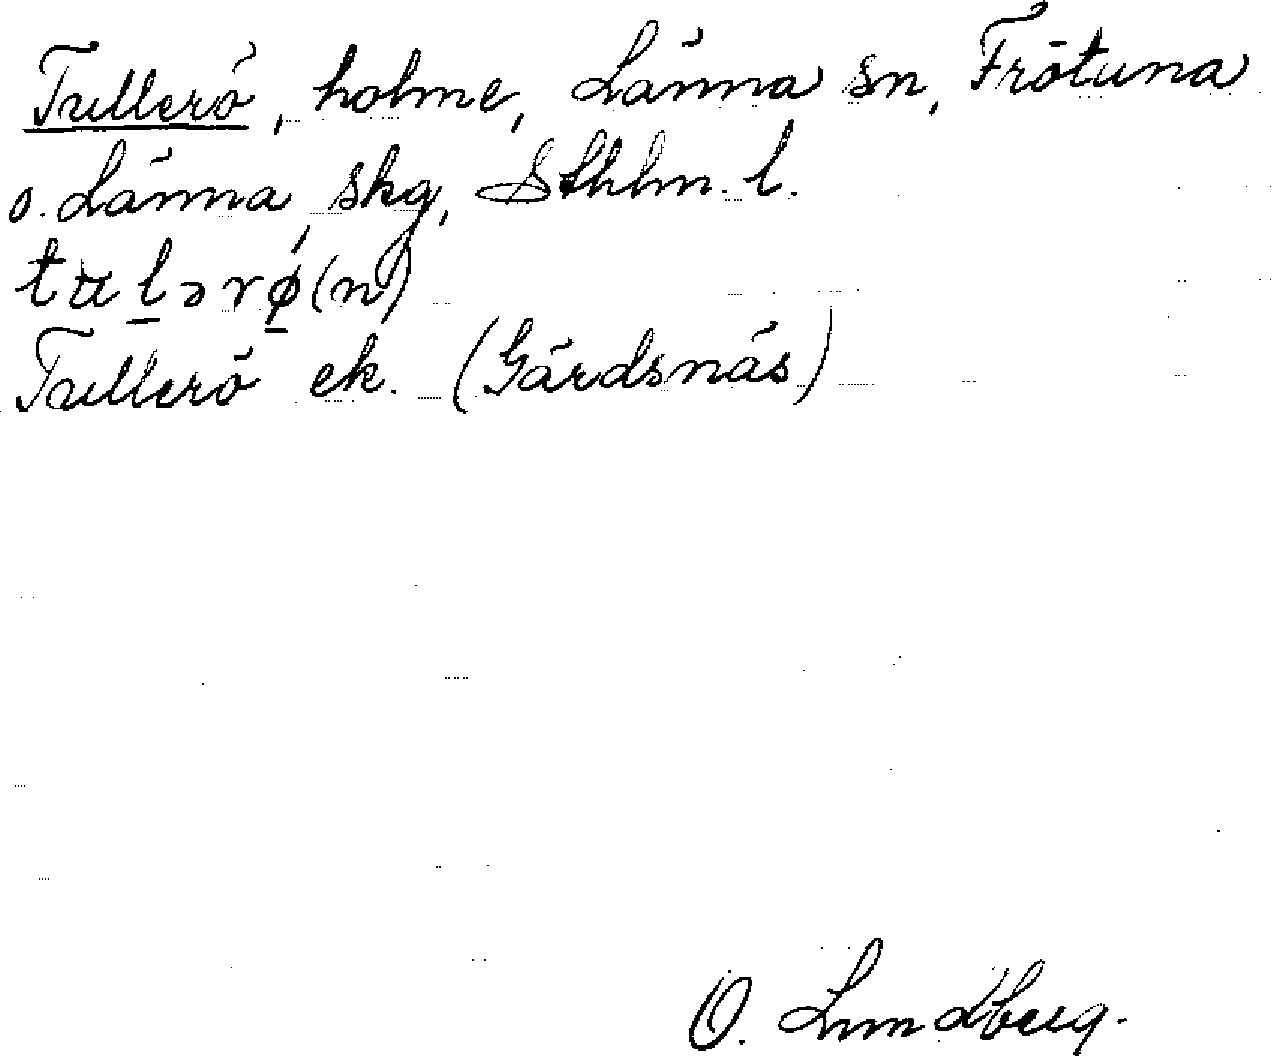 Tullerö, holme, Länna sn, Frötuna
o. Länna skg, Sthlm. l.
tɯl̲ərø̲(n)
Tullerö ek. (Gärdsnäs)
O. Lundberg.